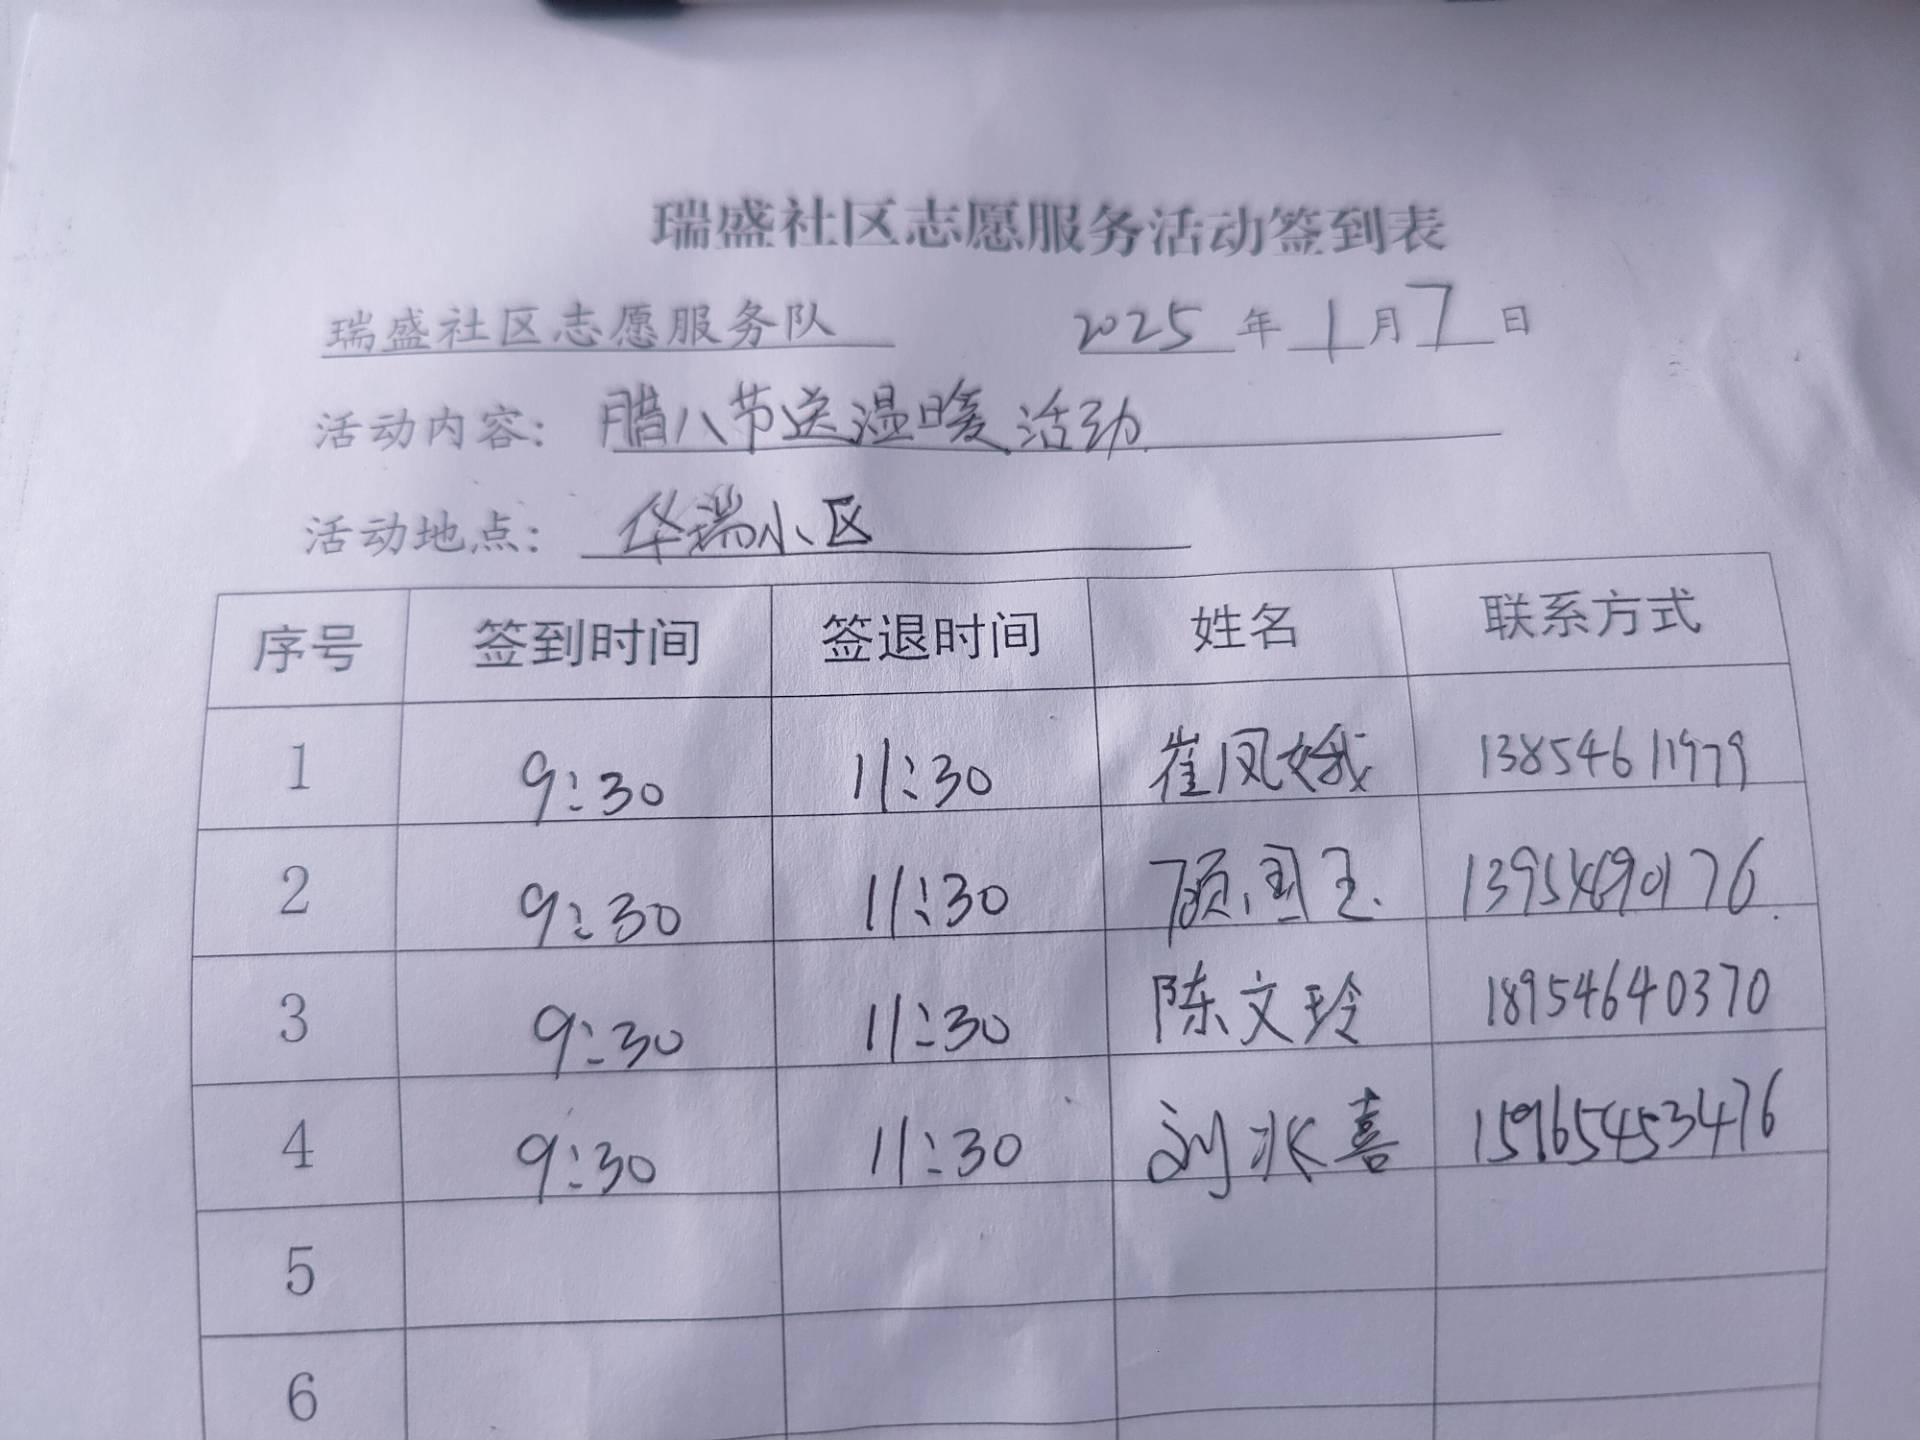 瑞盛社区志愿服务活动签到表
瑞盛社区志愿服务队 2025 年 1 月 7 日
活动内容：腊八节送温暖活动
活动地点：华瑞小区
序号 签到时间 签退时间 姓名 联系方式
1 9:30 11:30 崔凤娥 13854611979
2 9:30 11:30 国玉
3 9:30 11:30 陈文玲 18954640370
4 9:30 11:30 刘冰喜 15965453476
5
6